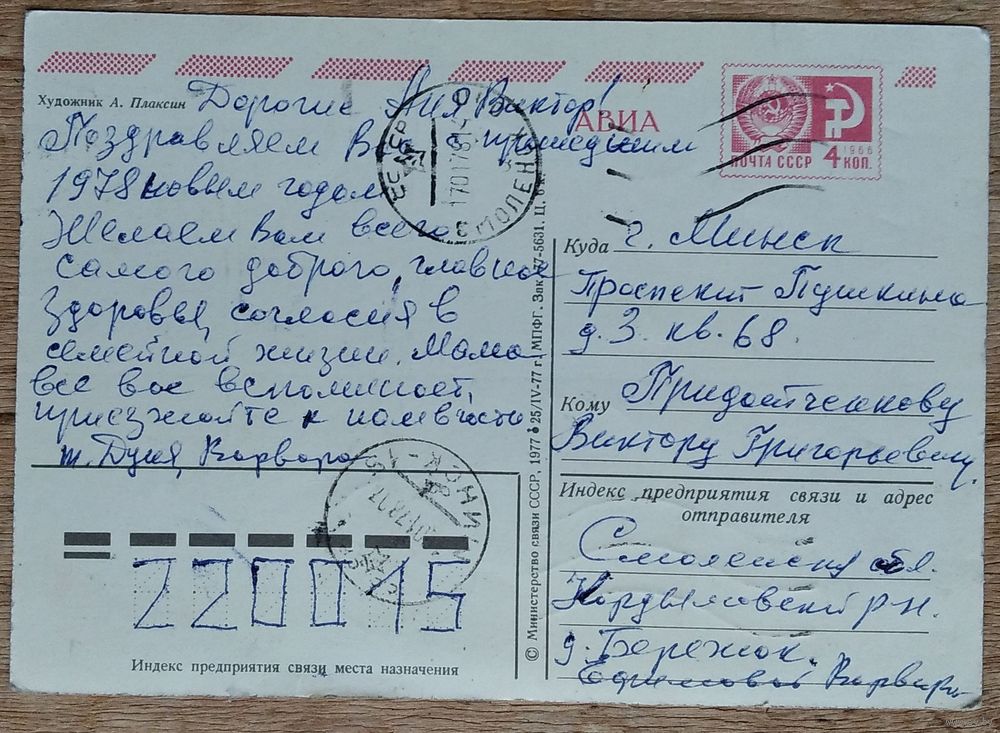 Художник А. Плаксин
Дорогие Ния, Виктор!
Поздравляем Вас с прошедшим
1978 новым годом
Желаем Вам всего
самого доброго, главное
здоровья, согласия в
семейной жизни. Мама
все вас вспоминает,
приезжайте к нам в гости
т. Дуня, Варвара
АВИА
ПОЧТА СССР
4 КОП.
1966
СССР
СМОЛЕНСК
МИНСК
Куда г. Минск
Проспект Пушкина
д. 3. кв. 68.
Кому Придатченкову
Виктору Григорьевичу.
Индекс предприятия связи и адрес
отправителя
Смоленская обл.
Кардымовский р-н.
д. Бережок.
Ефимовой Варвары
220015
Индекс предприятия связи места назначения
© Министерство связи СССР, 1977 о 25/IV-77 г. МПФГ. Зак. 77-5631. Ц. 6 к.